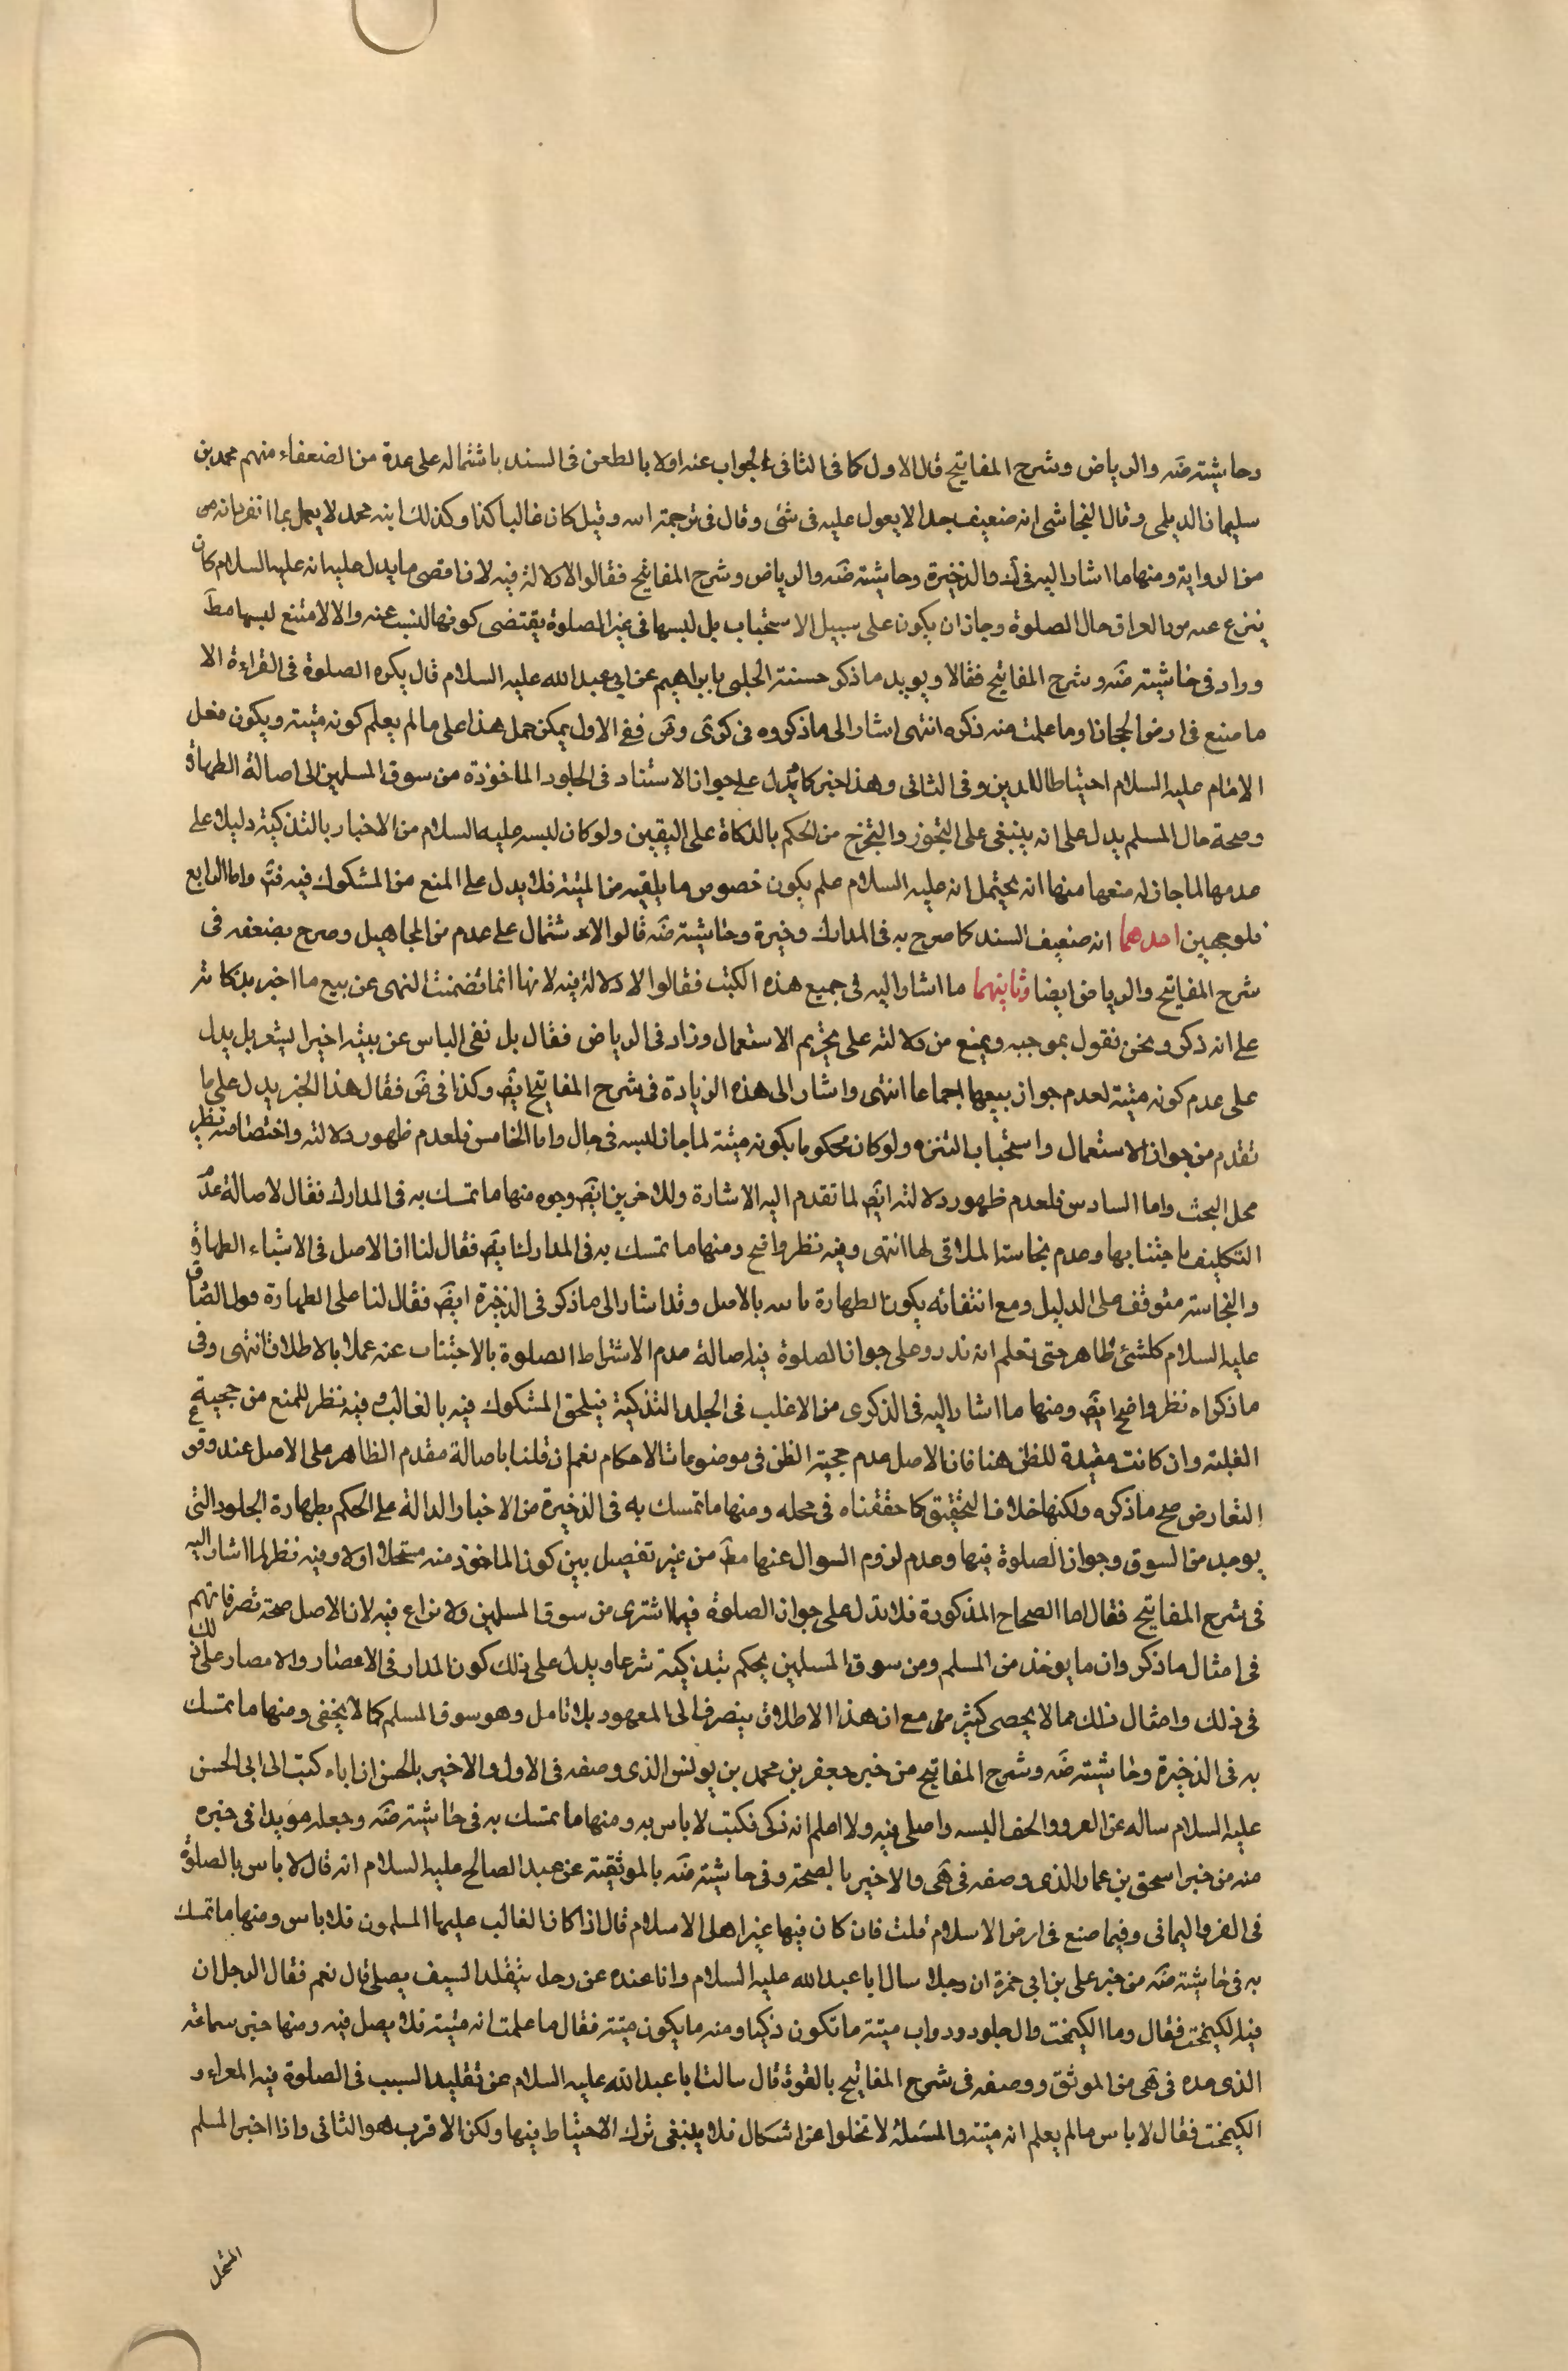 وحاشيته ضه والرياض وشرح المفاتيح قال الاول كما فى الثانى الجواب عنه اولا بالطعن فى السند باشتماله على عدة من الضعفاء منهم محمد بن
سليمان الديلمى وقال النجاشى انه ضعيف جدا لا يعول عليه فى شئ وقال فى ترجمة ابيه وقيل كان غاليا كذا وكذلك ابنه محمد لا يعمل بما انفردا به من
من الرواية ومنها ما اشار اليه فى ك والذخيرة وحاشيته ضه والرياض وشرح المفاتيح فقالوا لا دلالة فيه لان اقصى ما يدل عليه انه عليه السلام كان
ينزع عنه فرو العراق حال الصلوة وجاز ان يكون على سبيل الاستحباب بل لبسها فى غير الصلوة يقتضى كونها ليست عنه والا لامتنع لبسها مط
وزاد فى حاشيته ضه وشرح المفاتيح فقالا ويويد ما ذكر حسنة الحلبى بابراهيم عن ابى عبد الله عليه السلام قال يكره الصلوة فى الفراء الا
ما صنع فى ارض الحجاز او ما علمت منه ذكوه انتهى اشار الى ما ذكروه فى كرى وض ففى الاول يمكن حمل هذا على ما لم يعلم كونه ميتة ويكون فعل
الامام عليه السلام احتياطا للدين وفى الثانى وهذا خبر كما يدل على جواز الاستناد فى الجلود الماخوذة من سوق المسلمين الى اصالة الطهارة
وصحة حال المسلم يدل على انه ينبغى على التجوز والتخرج من الحكم بالذكاة على اليقين ولو كان لبسه عليه السلام من الاخبار بالتذكية دليلا على
عدمها لما جاز له منعها منها انه يحتمل انه عليه السلام علم بكون خصوص ما يلقيه من الميتة فلا يدل على المنع من المشكوك فيه فتم واما الرابع
فلوجهين احدهما انه ضعيف السند كما صرح به فى المدارك وخيرة وحاشيته ضه قالوا لاشتمال على عدم من المجاهيل وصرح بضعفه فى
شرح المفاتيح والرياض ايضا وثانيهما ما اشار اليه فى جميع هذه الكتب فقالوا لا دلالة فيه لانها انما تضمنت النهى عن بيع ما اخبر بذكاته
على انه ذكى ونحن نقول بموجبه ويمنع من دلالته على تحريم الاستعمال وزاد فى الرياض فقال بل نفى الباس عن بيعه اخيرا ليشعر بل يدل
على عدم كونه ميتة لعدم جواز بيعها اجماعا انتهى واشار الى هذه الزيادة فى شرح المفاتيح ايض وكذا فى ض فقال هذا الخبر يدل على ما
تقدم من جواز الاستعمال واستحباب التنزه ولو كان محكوما بكونه ميتة لما جاز لبسه فى حال واما الخامس فلعدم ظهور دلالته واختصاصه بغير
محل البحث واما السادس فلعدم ظهور دلالته ايض لما تقدم اليه الاشارة وللاخرين ايض وجوه منها ما تمسك به فى المدارك فقال لاصالة عدم
التكليف باجتنابها وعدم نجاسة الملاقى لها انتهى وفيه نظر واضح ومنها ما تمسك به فى المدارك ايض فقال لنا ان الاصل فى الاشياء الطهارة
والنجاسة متوقف على الدليل ومع انتفائه يكون الطهارة ثابتة بالاصل وقد اشار الى ما ذكر فى الذخيرة ايض فقال لنا على الطهارة قول الصادق
عليه السلام كل شئ طاهر حتى تعلم انه قذر وعلى جواز الصلوة فيه اصالة عدم الاشتراط الصلوة بالاجتناب عنه عملا بالاطلاق انتهى وفى
ما ذكراه نظر واضح ايض ومنها ما اشار اليه فى الذكرى من الاغلب فى الجلد التذكية فيلحق المشكوك فيه بالغالب وفيه نظر للمنع من حجية
الغلبة وان كانت مفيدة للظن هنا فان الاصل عدم حجية الظن فى موضوعات الاحكام نعم ان قلنا باصالة مقدم الظاهر على الاصل عند وقوع
التعارض صح ما ذكره ولكنها خلاف التحقيق كما حققناه فى محله ومنها ما تمسك به فى الذخيرة من الاخبار الدالة على الحكم بطهارة الجلود التى
يوجد من السوق وجواز الصلوة فيها وعدم لزوم السوال عنها مط من غير تفصيل بين كون الماخوذ منه مستحلا اولا وفيه نظر لما اشار اليه
فى شرح المفاتيح فقال اما الصحاح المذكورة فلا تدل على جواز الصلوة فيما اشترى من سوق المسلمين ولا نزاع فيه لان الاصل صحة تصرفاتهم
فى امثال ما ذكر وان ما يوخذ من المسلم ومن سوق المسلمين يحكم بتذكيته شرعا ويدل على ذلك كون المدار فى الاعصار والامصار على ذلك
فى ذلك وامثال ذلك مما لا يحصى كثيرة مع ان هذا الاطلاق ينصرف الى المعهود بلا تامل وهو سوق المسلم كما لا يخفى ومنها ما تمسك
به فى الذخيرة وحاشيته ضه وشرح المفاتيح من خبر جعفر بن محمد بن يونس الذى وصفه فى الاول والاخير بالحسن ان اباه كتب الى ابى الحسن
عليه السلام ساله عن الفرو والخف البسه واصلى فيه ولا اعلم انه ذكى فكتب لا باس به ومنها ما تمسك به فى حاشيته ضه وجعله مويدا فى خيره
منه من خبر اسحق بن عمار الذى وصفه فى هى والاخير بالصحة وفى حاشيته ضه بالموثقية عن عبد الصالح عليه السلام انه قال لا باس بالصلوة
فى الفرو اليمانى وفيما صنع فى ارض الاسلام قلت فان كان فيها غير اهل الاسلام قال اذا كان الغالب عليها المسلمون فلا باس ومنها ما تمسك
به فى حاشيته ضه من خبر على بن ابى حمزة ان رجلا سال ابا عبد الله عليه السلام وانا عنده عن رجل يتقلد السيف يصلى قال نعم فقال الرجل ان
فيه الكيمخت فقال وما الكيمخت وال جلود ودواب ميتة ما تكون ذكيا ومنه ما يكون ميتة فقال ما علمت انه ميتة فلا يصل فيه ومنها خبر سماعة
الذى عده فى هى من الموثق ووصفه فى شرح المفاتيح بالقوة قال سالت ابا عبد الله عليه السلام عن تقليد السيف فى الصلوة فيه الغراء و
الكيمخت فقال لا باس ما لم يعلم انه ميتة والمسئلة لا تخلوا عن اشكال فلا ينبغى ترك الاحتياط فيها ولكن الاقرب هو الثانى واذا اخبر المسلم
المستحل